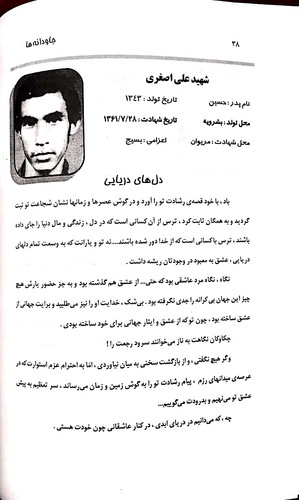 جاودانه‌ها
۳۸
شهید علی اصغری
نام پدر : حسین
تاریخ تولد : ۱۳۴۳
محل تولد : بشرویه
تاریخ شهادت : ۱۳۶۱/۷/۲۸
محل شهادت : مریوان
اعزامی : بسیج
دل‌های دریایی
باد ، با خود قصه‌ی رشادت تو را آورد و در گوش عصرها و زمانها نشان شجاعت تو ثبت
گردید و به همگان ثابت کرد ، ترس از آن کسانی است که در دل ، زندگی و مال دنیا را جای داده
باشند ، ترس با کسانی است که از خدا دور شده باشند....نه تو و یارانت که به وسعت تمام دلهای
دریایی ، عشق به معبود در وجودتان ریشه داشت .
نگاه ، نگاه مرد عاشقی بود که حتی... از عشق هم گذشته بود و به جز حضور یارش هیچ
چیز این جهان بی‌کرانه را جدی نگرفته بود. بی‌شک ، خدایت او را نیز می‌طلبید و برایت جهانی از
عشق ساخته بود ، چون تو که از عشق و ایثار جهانی برای خود ساخته بودی .
چکاوکان نگاهت به ناز می‌خوانند سرود رجعت را !
وگر هیچ نگفتی ، و از بازگشت سخنی به میان نیاوردی ، اما به احترام عزم استوارت که در
عرصه‌ی میدانهای رزم ، پیام رشادت تو را به گوش زمین و زمان می‌رساند ، سر تعظیم به پیش
عشق تو می‌نهیم و بدرودت می‌گوییم...
چه ، که می‌دانیم در دریای ابدی ، در کنار عاشقانی چون خودت هستی .